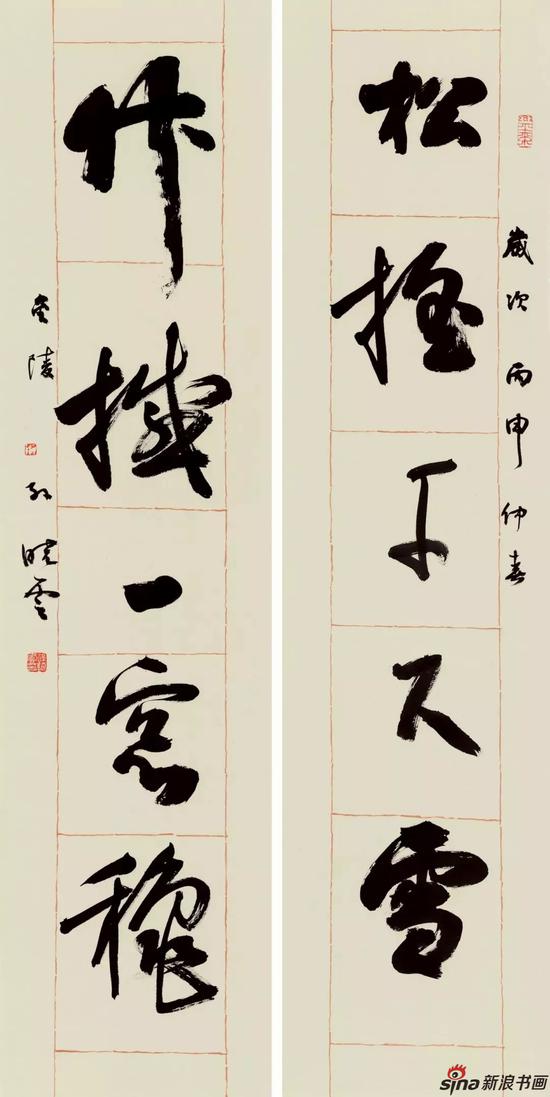 松摇千尺雪
歲次丙申仲春
竹撼一窗穐
金陵孙晓雲
sina新浪书画